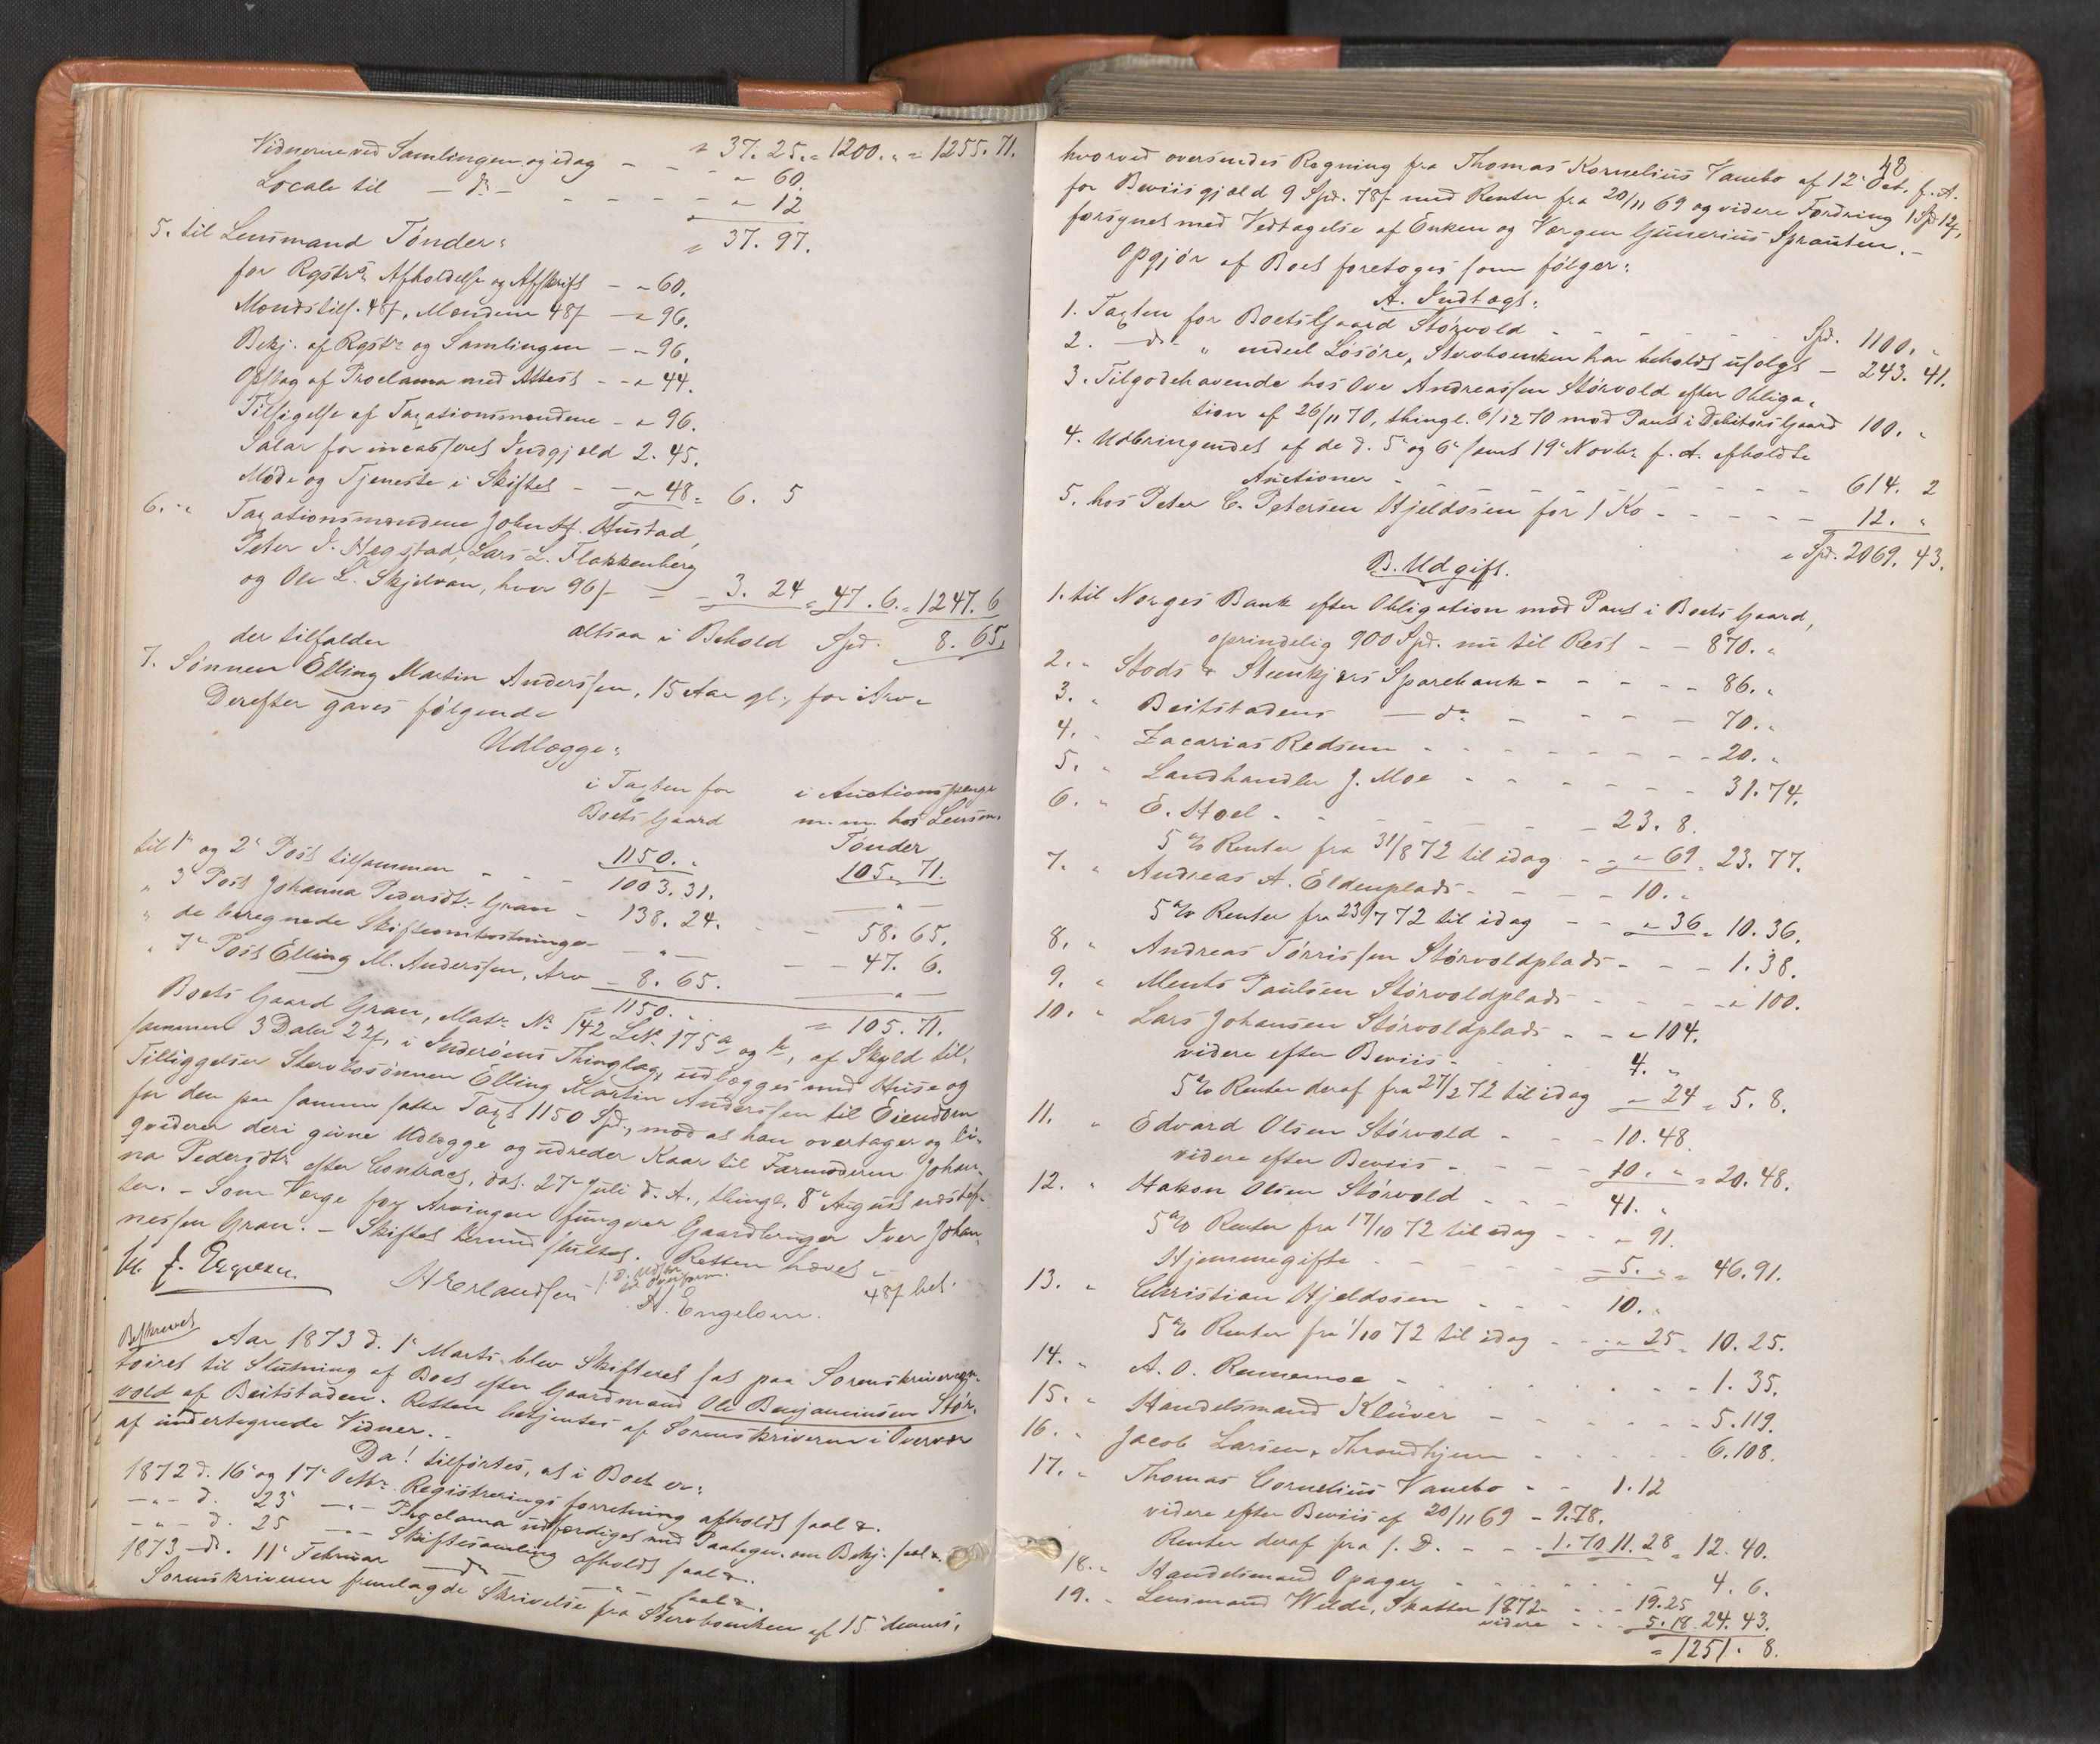 Vidnerne ved Samlingen og idag - - " 37. 25. = 1200. " = 1255. 71.
Locale til - do - - - " 60.
- - - - - " 12
5. til Lensmand Tønder: " 37. 97.
for Rgstrs Afholdelse og Afskrift - " 60.
Mændstils. 48 f, Mændene 48 f - " 96.
Bekj. af Rgstr og Samlingen - " 96.
Opslag af Proclama med Attest - " 44.
Tilsigelse af Taxationsmændene - " 96.
Salær for incasseret Indgjæld 2. 45.
Møde og Tjeneste i Skiftet - " 48 = 6. 5
6. " Taxationsmændene John Hustad,
Peter J. Hegstad, Lars L. Flakkenberg
og Ole L. Skjelvan, hver 96 f - - 3. 24 = 47. 6. = 1247. 6
altsaa i Behold Spd. 8. 65.
der tilfalder
7. Sønnen Elling Martin Anderssen, 15 Aar gl., for Arv.
Derefter gaves følgende
Udlægge:
i Taxten for Boets Gaard
i Auctionspenge m. m. hos Lensm. Tønder
1150. " 105. 71.
til 1e og 2e Post tilsammen - - - 1003. 31. - " -
" 3e Post Johanna Pedersdtr Gran - 138. 24. - - 58. 65.
" de beregnede Skifteomkostninger - " - - - 47. 6.
" 7e Post Elling M. Anderssen, Arv - 8. 65. - " -
= 1150. " = 105. 71.
Boets Gaard Gran, Matr. No 142 LNo 175 a og b, af Skyld til-
sammen 3 Daler 22 f, i Inderøens Thinglag, udlægges med Huse og
Tilliggelser Stervbosønnen Elling Martin Anderssen til Eiendom
for den paa samme satte Taxt 1150 Spd., mod at han overtager og li-
qviderer deri givne Udlægge og udreder Kaar til Farmoderen Johan-
na Pedersdtr efter Contract, dat. 27e Juli d. A., thingl. 8e August næstef-
ter. - Som Værge for Arvingen fungerer Gaardbruger Iver Johan-
nessen Gran. - Skiftet hermed sluttet. Retten hævet. -
H Erlandsen A. Engelsen. 48 f bet.
Beskrevet
Aar 1873 d. 1e Marts blev Skifteret sat paa Sorenskrivercon-
toiret til Slutning af Boet efter Gaardmand Ole Benjaminsen Stør-
vold af Beitstaden. Retten betjentes af Sorenskriveren i Overvær
af undertegnede Vidner. -
Da! tilførtes, at i Boet er:
1872 d. 16e og 17e Octbr. Registreringsforretning afholdt saal. &.
- " - d. 23e - " - Proclama udfærdiget med Paategn. om Bekj. saal. &.
- " - d. 25 - " - Skiftesamling afholdt saal. &.
1873 - d. 11e Februar - do - - " - saal. &.
Sorenskriveren fremlagde Skrivelse fra Stervboenken af 15e dennes,
48
hvorved oversendes Regning fra Thomas Kornelius Vanebo af 12e Oct. f. A.
for Beviisgjæld 9 Spd. 78 f med Renter fra 20/11 69 og videre Fordring 1 Spd 12 f,
forsynet med Vedtagelse af Enken og Værgen Gunerius Sprauten. -
Opgjør af Boet foretoges som følger:
A. Indtægt:
1. Taxten for Boets Gaard Størvold - - - - - Spd. 1100. "
2. - do - " endeel Løsøre, Stervboenken har beholdt usolgt - 243. 41.
3. Tilgodehavende hos Ove Andreassen Størvold efter Obliga-
tion af 26/11 70, thingl. 6/12 70 mod Pant i Debitors Gaard 100. "
4. Udbringendet af de d. 5e og 6e samt 19e Novbr. f. A. afholdte
Auctioner - - - - - - - - 614. 2
5. hos Peter C. Petersen Hjeldosen for 1 Ko - - - - - 12. "
= Spd. 2069. 43.
B. Udgift.
1. til Norges Bank efter Obligation mod Pant i Boets Gaard,
oprindelig 900 Spd. nu til Rest - - 870. "
2. " Stods & Stenkjærs Sparebank - - - - - 86. "
3. " Beitstadens - do - - - - - 70. "
4. " Zacarias Redsem - - - - - - - 20. "
5. " Landhandler J. Moe - - - - - - 31. 74.
6. " E. Stoel - - - - - - 23. 8.
5 % Renter fra 31/8 72 til idag - " 69 = 23. 77.
7. " Andreas A. Eldenplads - - - - 10. "
5 % Renter fra 23/7 72 til idag - - " 36 = 10. 36.
8. " Andreas Tørrissen Størvoldplads - - - 1. 38.
9. " Ments Paulsen Størvoldplads - - - - " 100.
10. " Lars Johansen Størvoldplads - - " 104.
videre efter Beviis - - - - 4. "
5 % Renter deraf fra 27/2 72 til idag " 24 = 5. 8.
11. " Edvard Olsen Størvold - - - 10. 48.
videre efter Beviis - - - - 10. " = 20. 48.
12. " Hakon Olsen Størvold - - - 41. "
5 % Renter fra 17/10 72 til idag - - " 91.
Hjemmegifte - - - - - 5. " = 46. 91.
13. " Christian Hjeldosen - - - 10. "
5 % Renter fra 1/10 72 til idag - - " 25 = 10. 25.
14. " A. O. Rennemoe - - - - - - 1. 35.
15. " Handelsmand Klüver - - - - - - 5. 119.
16. " Jacob Larsen, Throndhjem - - - - 6. 108.
17. " Thomas Cornelius Vanebo - - 1. 12
videre efter Beviis af 20/11 69 - 9. 78.
Renter deraf fra s. D. - - - 1. 70 11. 28 = 12. 40.
18. " Handelsmand Opager - - - - - - 4. 6.
19. " Lensmand Welde, Skatter 1872 - - - 19. 25
videre - - - 5. 18 24. 43.
= 1251. 8.